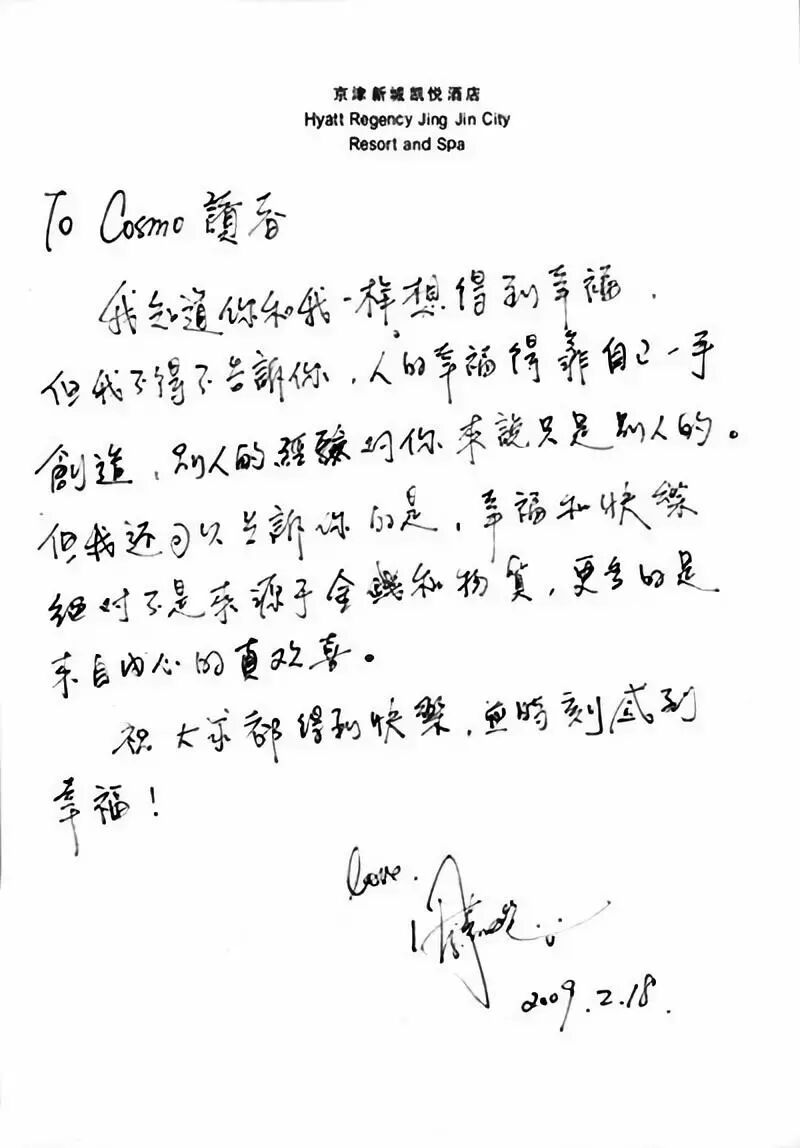 京津新城凯悦酒店
Hyatt Regency Jing Jin City
Resort and Spa
To Cosmo 讀者
我知道你和我一样想得到幸福，
但我不得不告訴你，人的幸福得靠自己一手
創造，别人的經驗对你来說只是别人的。
但我还可以告訴你的是，幸福和快樂
绝对不是来源于金錢和物質，更多的是
来自内心的真欢喜。
祝大家都得到快樂，並時刻感到
幸福！
love.
2009.2.18.